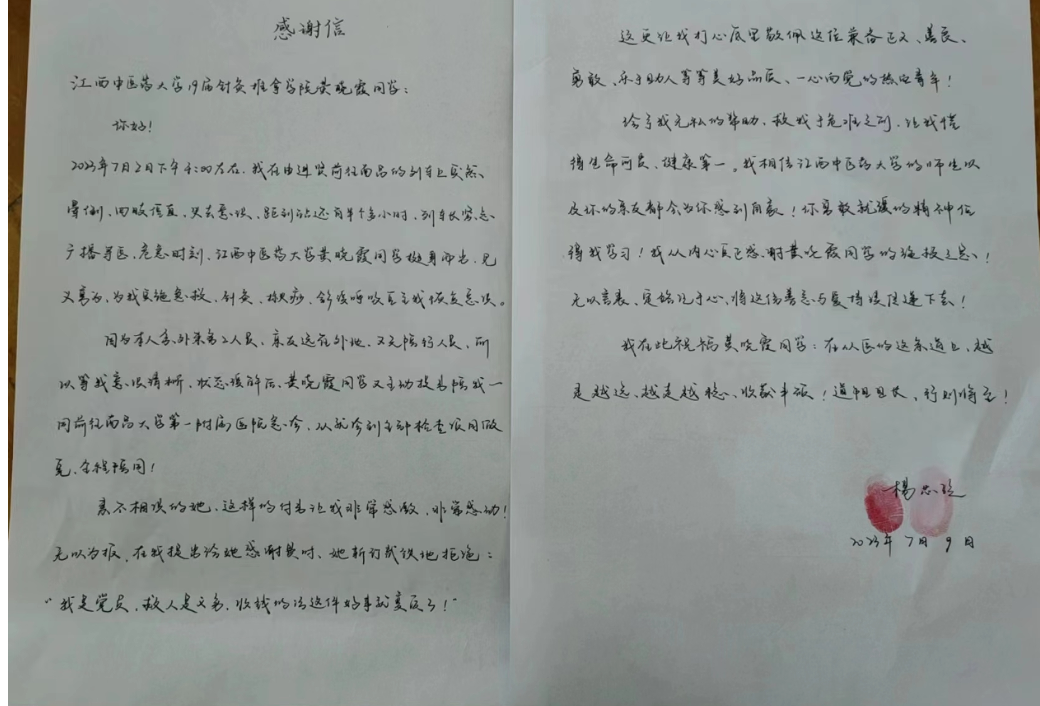 感谢信
江西中医药大学19届针灸推拿学院黄晓霞同学：
你好！
2023年7月2日下午4:00左右，我在由进贤前往南昌的列车上突然
晕倒，四肢僵直，失去意识，距到站还有半个多小时，列车长紧急
广播寻医，危急时刻，江西中医药大学黄晓霞同学挺身而出，见
义勇为，为我实施急救，针灸、推痧，舒缓呼吸直至我恢复意识。
因为本人系外来务工人员，亲友远在外地，又无陪行人员，所
以等我意识清晰，状态缓解后，黄晓霞同学又主动提出陪我一
同前往南昌大学第一附属医院急诊，从就诊到全部检查项目做
完，全程陪同！
素不相识的她，这样的付出让我非常感激，非常感动！
无以为报，在我提出给她感谢费时，她斩钉截铁地拒绝：
“我是党员，救人是义务，收钱的话这件好事就变质了！”
这更让我打心底里敬佩这位兼备正义、善良、
勇敢、乐于助人等等美好品质、一心向党的热血青年！
给予我无私的帮助，救我于危难之间，让我懂
得生命可贵、健康第一。我相信江西中医药大学的师生以
及你的亲友都会为你感到自豪！你勇敢就援的精神值
得我学习！我从内心真正感谢黄晓霞同学的施救之恩！
无以言表，定铭记于心，将这份善意与爱持续传递下去！
我在此祝福黄晓霞同学：在从医的这条道上，越
走越远、越走越稳、收获丰硕！道阻且长，行则将至！
杨忠
2023年7月9日